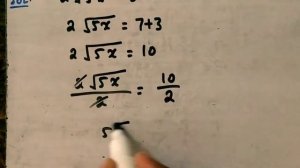 2 √5x = 7+3
2 √5x = 10
2 √5x / 2 = 10 / 2